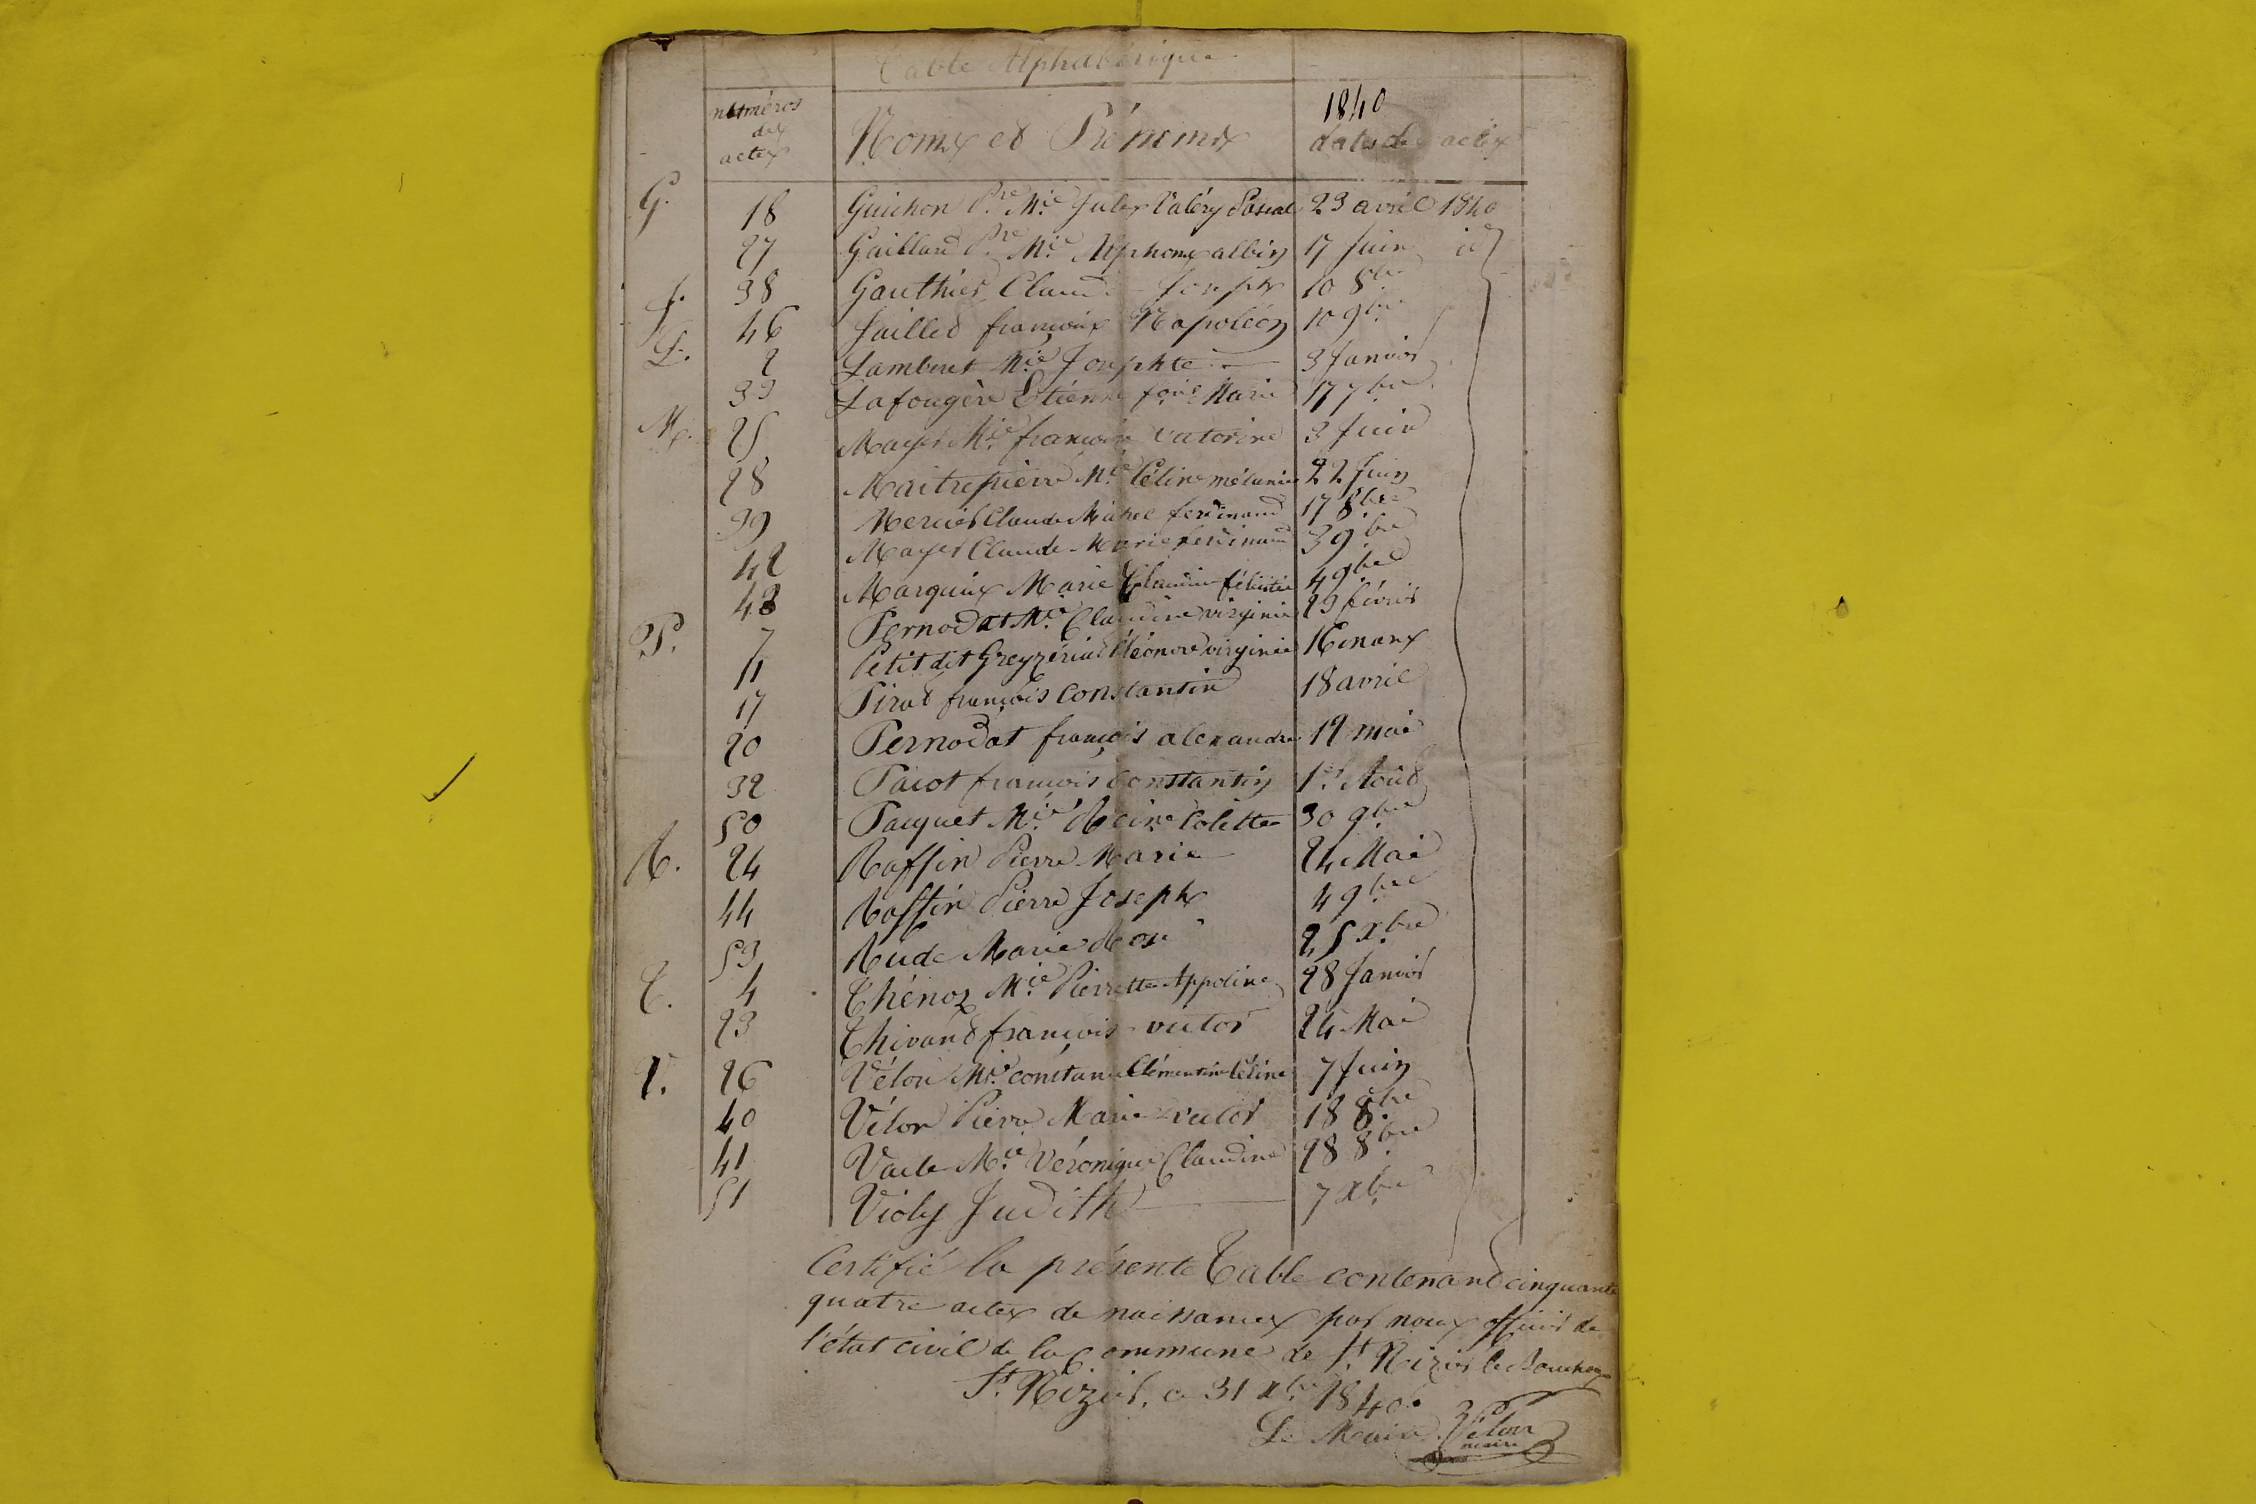 Table Alphabétique
numéros des actes Noms et Prénoms 1840 dates des actes
G. 18 Guichon P.re M.ie Jules Valéry Pascal 23 avril 1840
27 Gaillard P.re M.ie Alphonse albin 17 Juin id
38 Gauthier Claude Joseph 10 8bre
J. 46 Jaillet françois Napoléon 10 9bre
L. 2 Lamberet M.ie Josephte 3 Janvier
33 Lafougère Etienne fois Marie 17 7bre
M. 25 Mayer M.ie françoise victorine 3 Juin
28 Maitrepierre M.ie Céline mélanie 22 Juin
39 Mercier Claude Michel ferdinand 17 8bre
42 Mayer Claude Marie ferdinand 3 9bre
43 Marquis Marie Claudine félicitée 4 9bre
P. 7 Pernodat M.ie Claudine virginie 29 février
11 Petit dit Greyzériat Eléonore virginie 16 mars
17 Pirat françois Constantin 18 avril
20 Pernodat françois alexandre 12 mai
32 Pacot françois Constantin 1er Août
50 Pacquet M.ie Reine Colette 30 9bre
R. 24 Raffin Pierre Marie 24 Mai
44 Raffin Pierre Joseph 4 9bre
53 Rude Marie Rose 25 Xbre
T. 4 Thénoz M.ie Pierrette Appoline 28 Janvier
23 Thivand françois victor 24 Mai
V. 26 Vélon M.ie constance Clémentine Céline 7 Juin
40 Vélon Pierre Marie victor 18 8bre
41 M.ie Véronique Claudine 28 8bre
51 Violy Judith 7 Xbre
Certifié la présente Table contenant cinquante
quatre actes de naissances par nous officier de
l'état civil de la Commune de St Nizier le Bouchoux
St Nizier, ce 31 Xbre 1840.
Le Maire. Vélon
maire